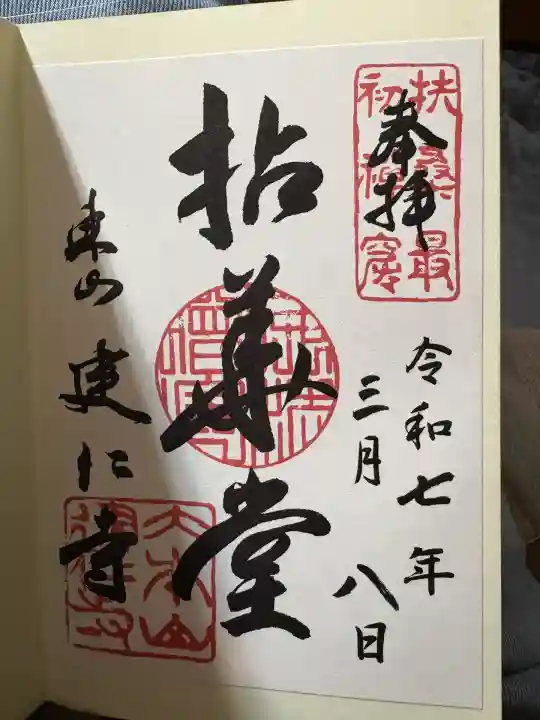 奉拝
扶桑最
初禅窟
令和七年
三月八日
拈華堂
東山建仁寺
大本山